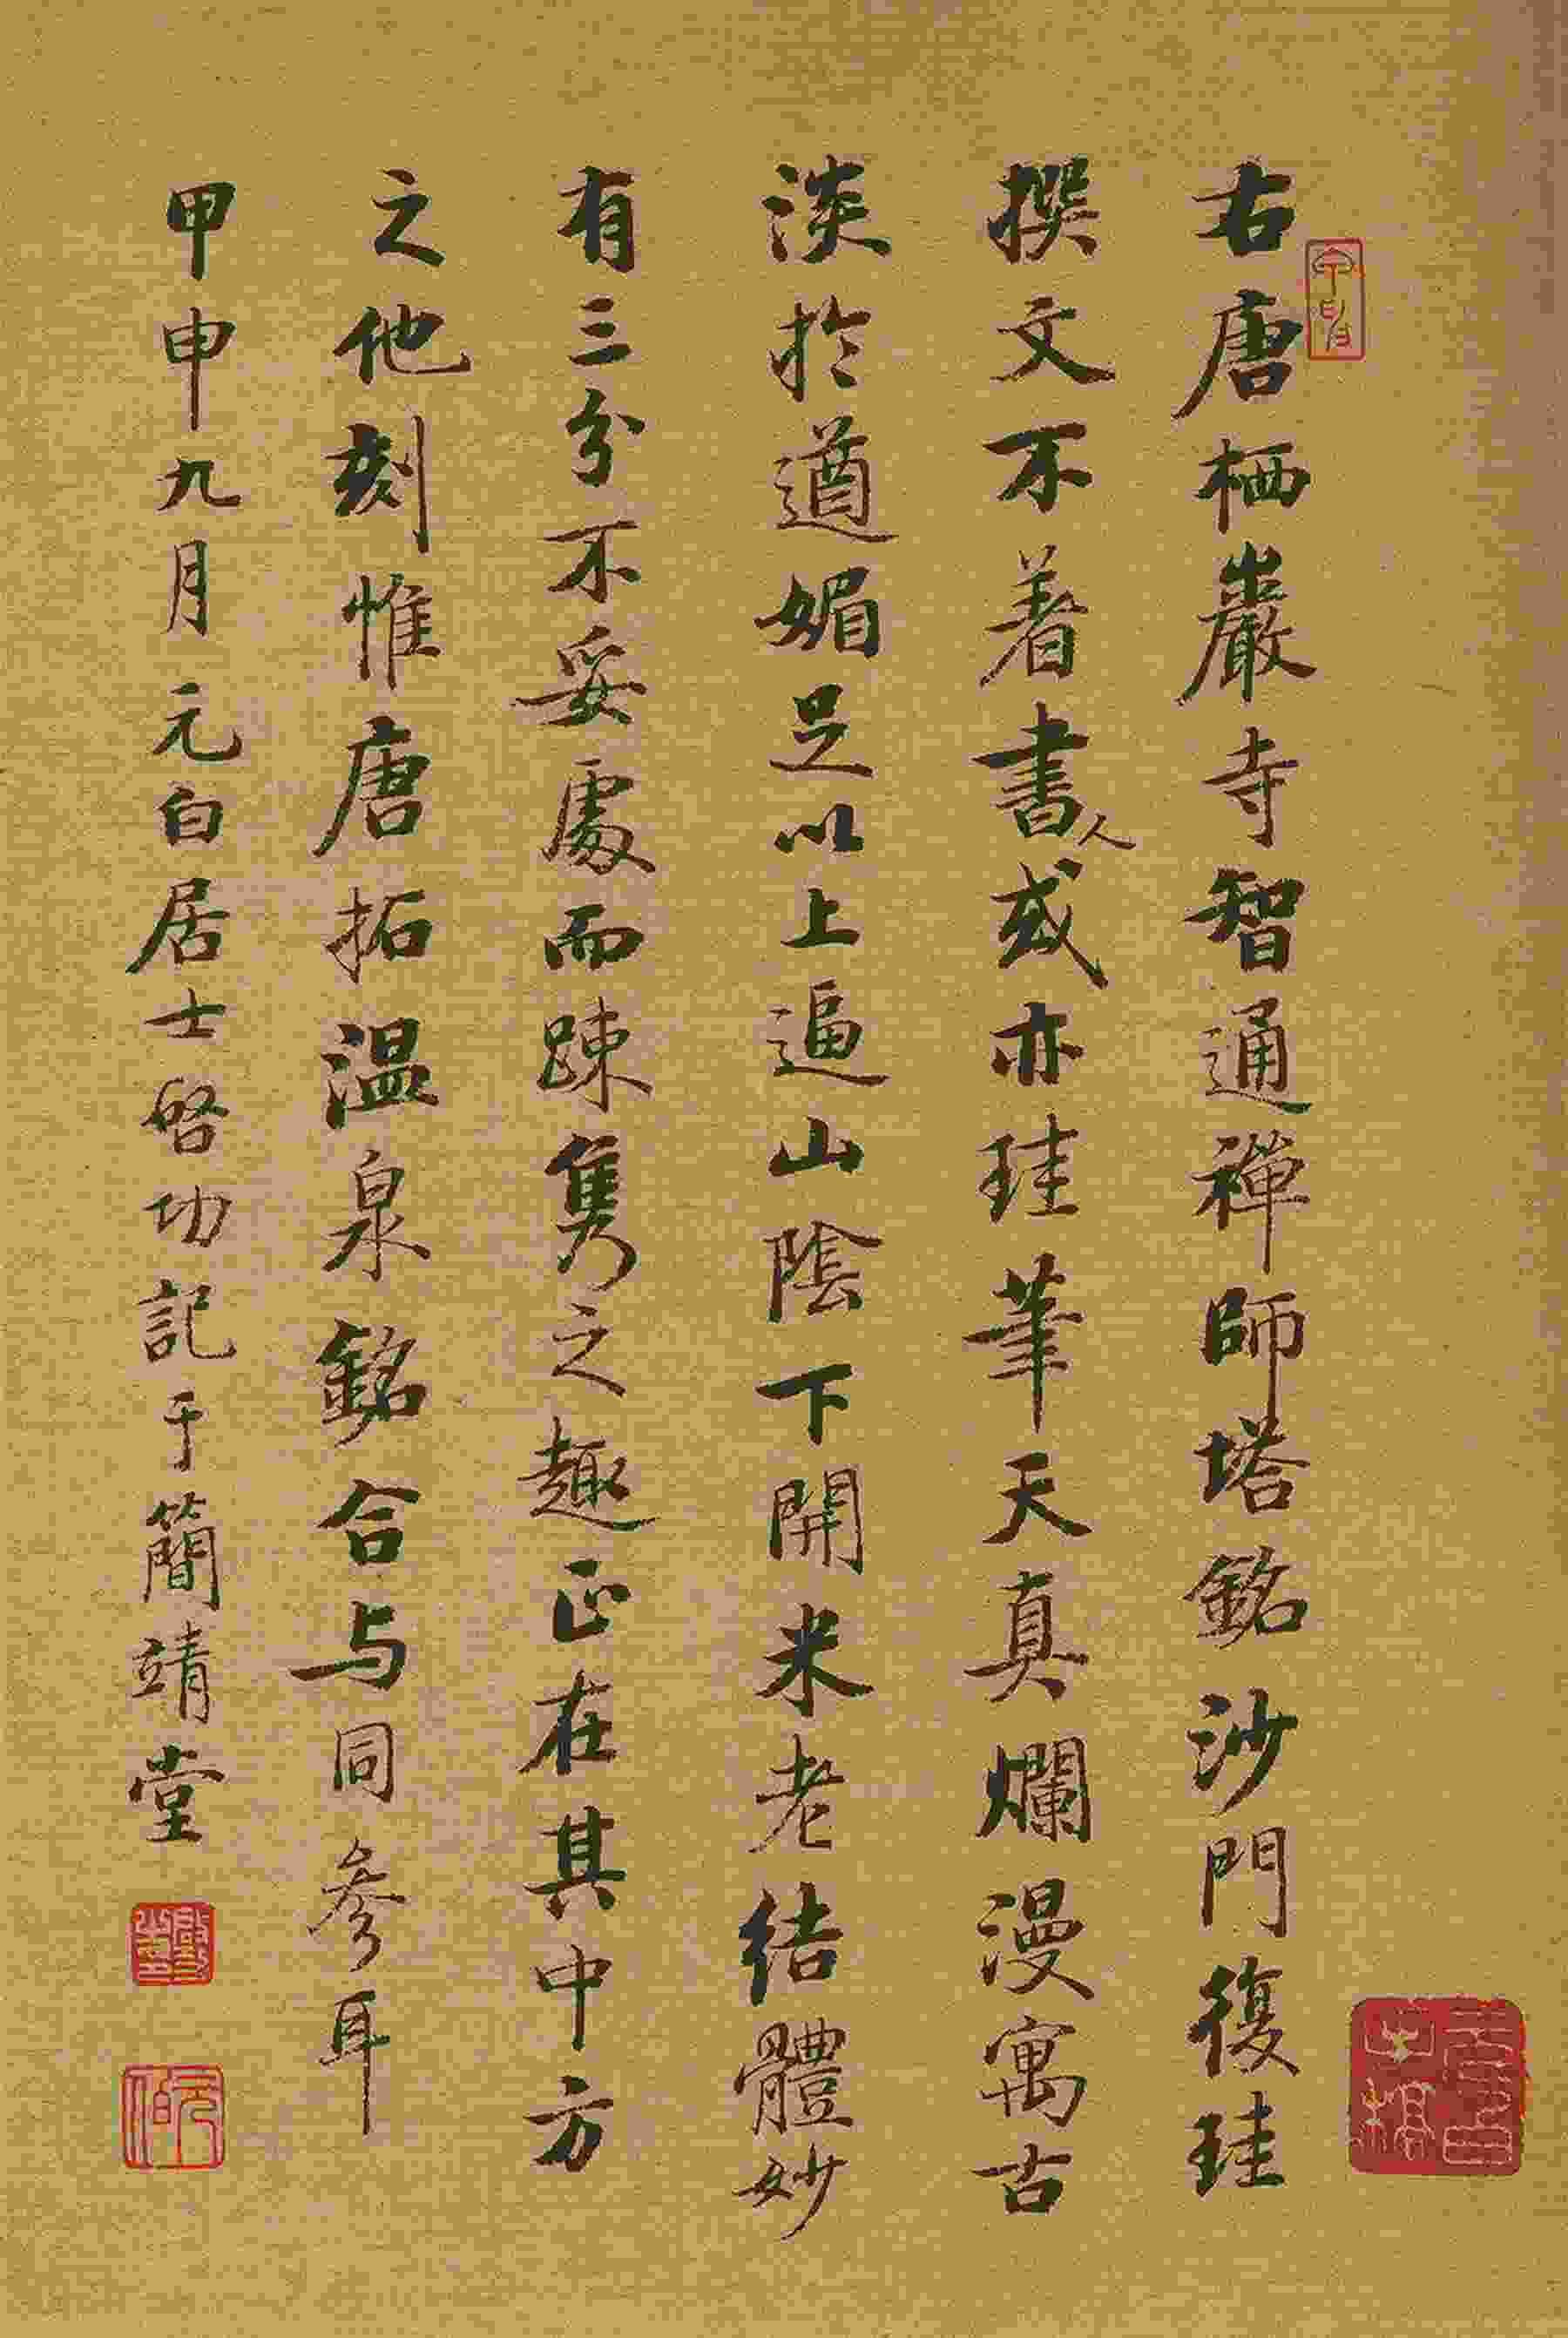 右唐栖巖寺智通禅師塔銘沙門復珪
撰文不着書人或亦珪筆天真爛漫寓古
淡於遒媚足以上逼山陰下開米老結體妙
有三分不妥處而踈雋之趣正在其中方
之他刻惟唐拓温泉銘合与同參耳
甲申九月元白居士啓功記于簡靖堂
元白